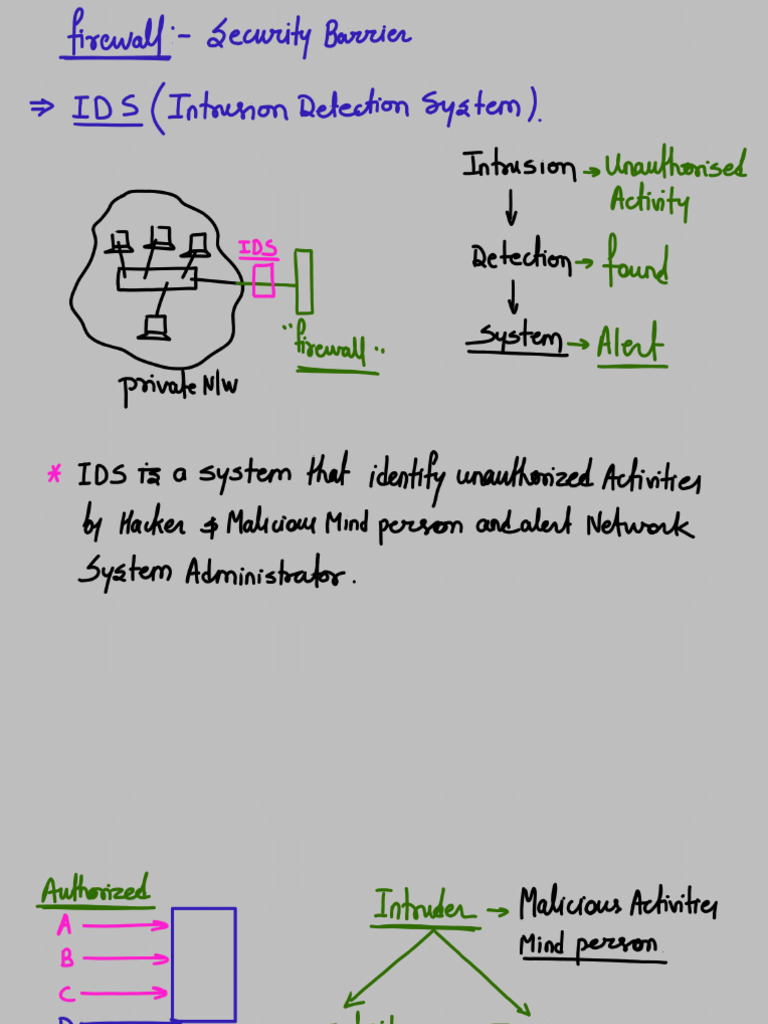 firewall :- Security Barrier
⇒ IDS (Intrusion Detection System).
Intrusion → Unauthorised Activity
Detection → found
System → Alert
IDS
"firewall"
private N/W
* IDS is a system that identify unauthorized Activities
by Hacker & Malicious Mind person and alert Network
System Administrator.
Authorized
A
B
C
D
Intruder → Malicious Activities
Mind person